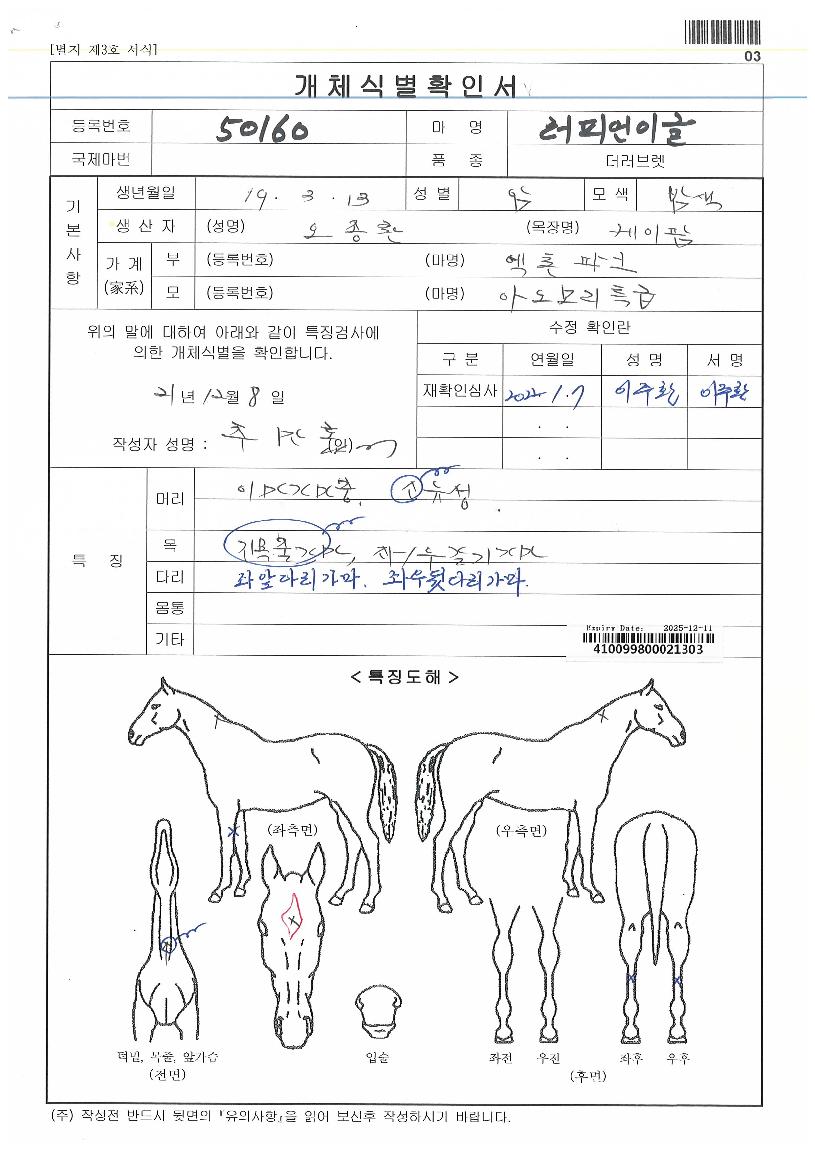 [별지 제3호 서식]
03
개체식별확인서
등록번호 50160 마 명 러피언이글
국제마번 품 종 더러브렛
기본사항
생년월일 19. 3. 13 성별 암 모색 밤색
생산자 (성명) 오종환 (목장명) 제이팜
가계 (家系) 부 (등록번호) (마명) 엑톤파크
모 (등록번호) (마명) 아오모리특급
위의 말에 대하여 아래와 같이 특징검사에
의한 개체식별을 확인합니다.
21년 12월 8일
작성자 성명 : (인)
수정 확인란
구분 연월일 성명 서명
재확인심사 2022. 1. 7 이주환 이주환
. .
. .
특 징
머리
목
다리 좌앞다리가마. 좌우뒷다리가마.
몸통
기타
Expiry Date: 2025-12-11
410099800021303
< 특징도해 >
(좌측면) (우측면)
턱밑, 목줄, 앞가슴
(전면)
입술
좌전 우전
좌후 우후
(후면)
(주) 작성전 반드시 뒷면의 『유의사항』을 읽어 보신후 작성하시기 바랍니다.